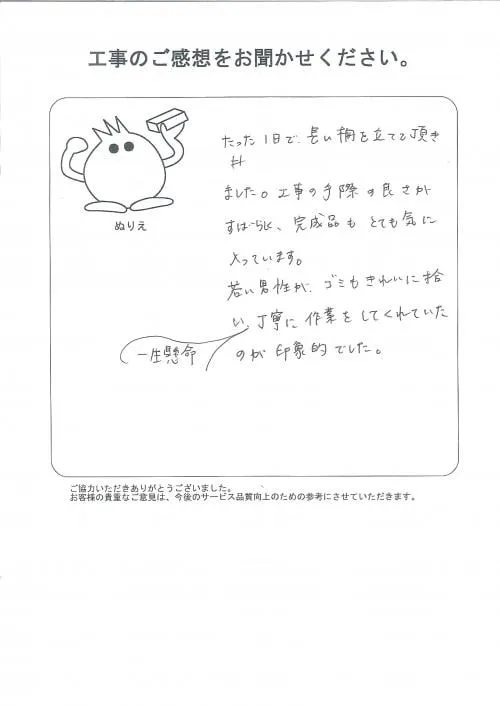 工事のご感想をお聞かせください。
ぬりえ
たった1日で、長い柵を立てて頂き
ました。工事の手際の良さが
すばらしく、完成品もとても気に
入っています。
若い男性が、ゴミもきれいに拾
い、丁寧に作業をしてくれていた
一生懸命
のが印象的でした。
ご協力いただきありがとうございました。
お客様の貴重なご意見は、今後のサービス品質向上のための参考にさせていただきます。